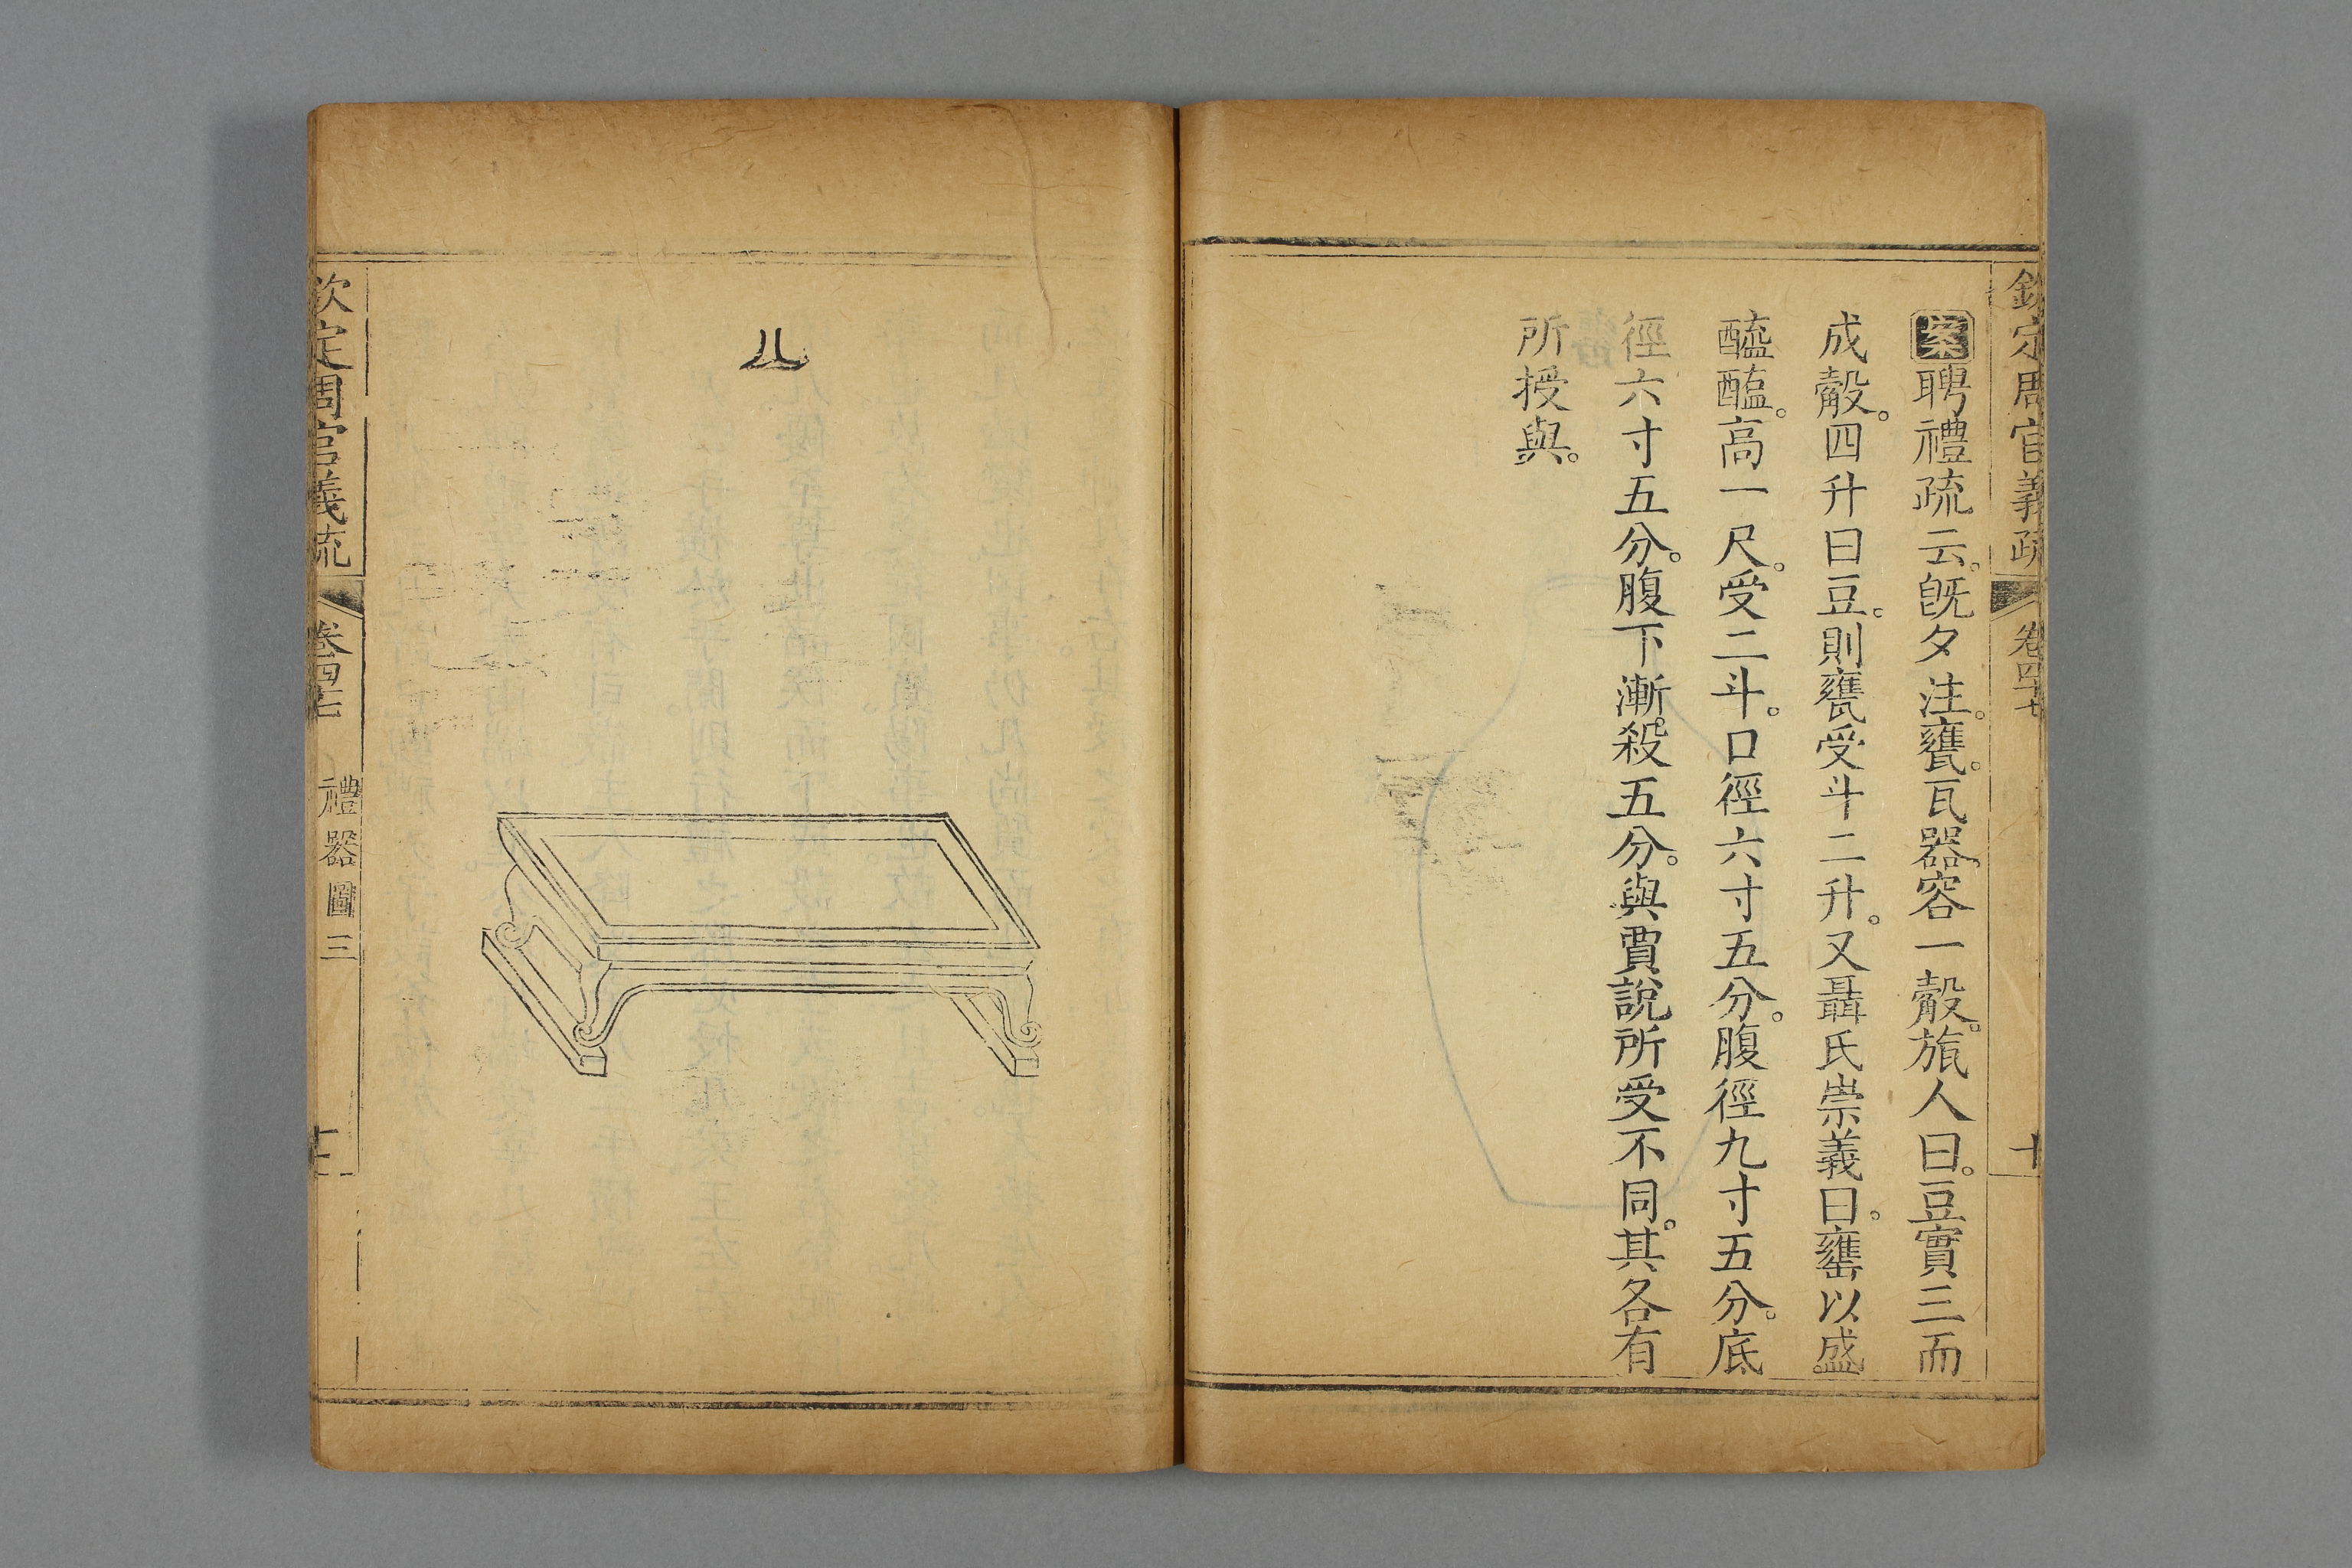 欽定周官義疏 卷四十七 十
案聘禮疏云。旣夕注。甕。瓦器。容一觳。旊人曰。豆實三而
成觳。四升曰豆。則甕受斗二升。又聶氏崇義曰。罋以盛
醯醢。高一尺。受二斗。口徑六寸五分。腹徑九寸五分。底
徑六寸五分。腹下漸殺五分。與賈說所受不同。其各有
所授與。
几
欽定周官義疏 卷四十七 禮器圖三